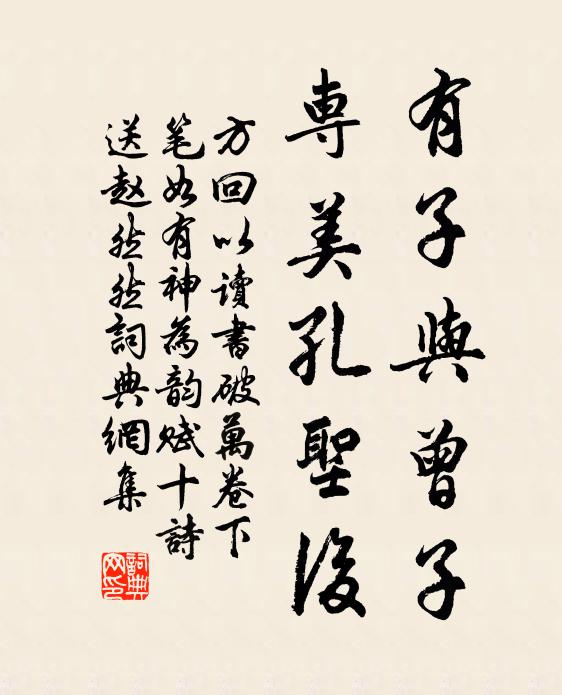 有子與曾子
専美孔聖後
方回以讀書破萬卷下
笔如有神為韵赋十詩
送赵然然詞典網集
詞典网印